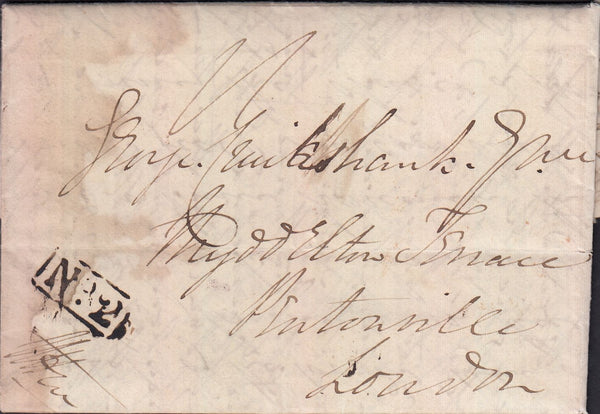 George Cruikshank Esqre
Myddelton Terrace
Pentonville
London
No. 2